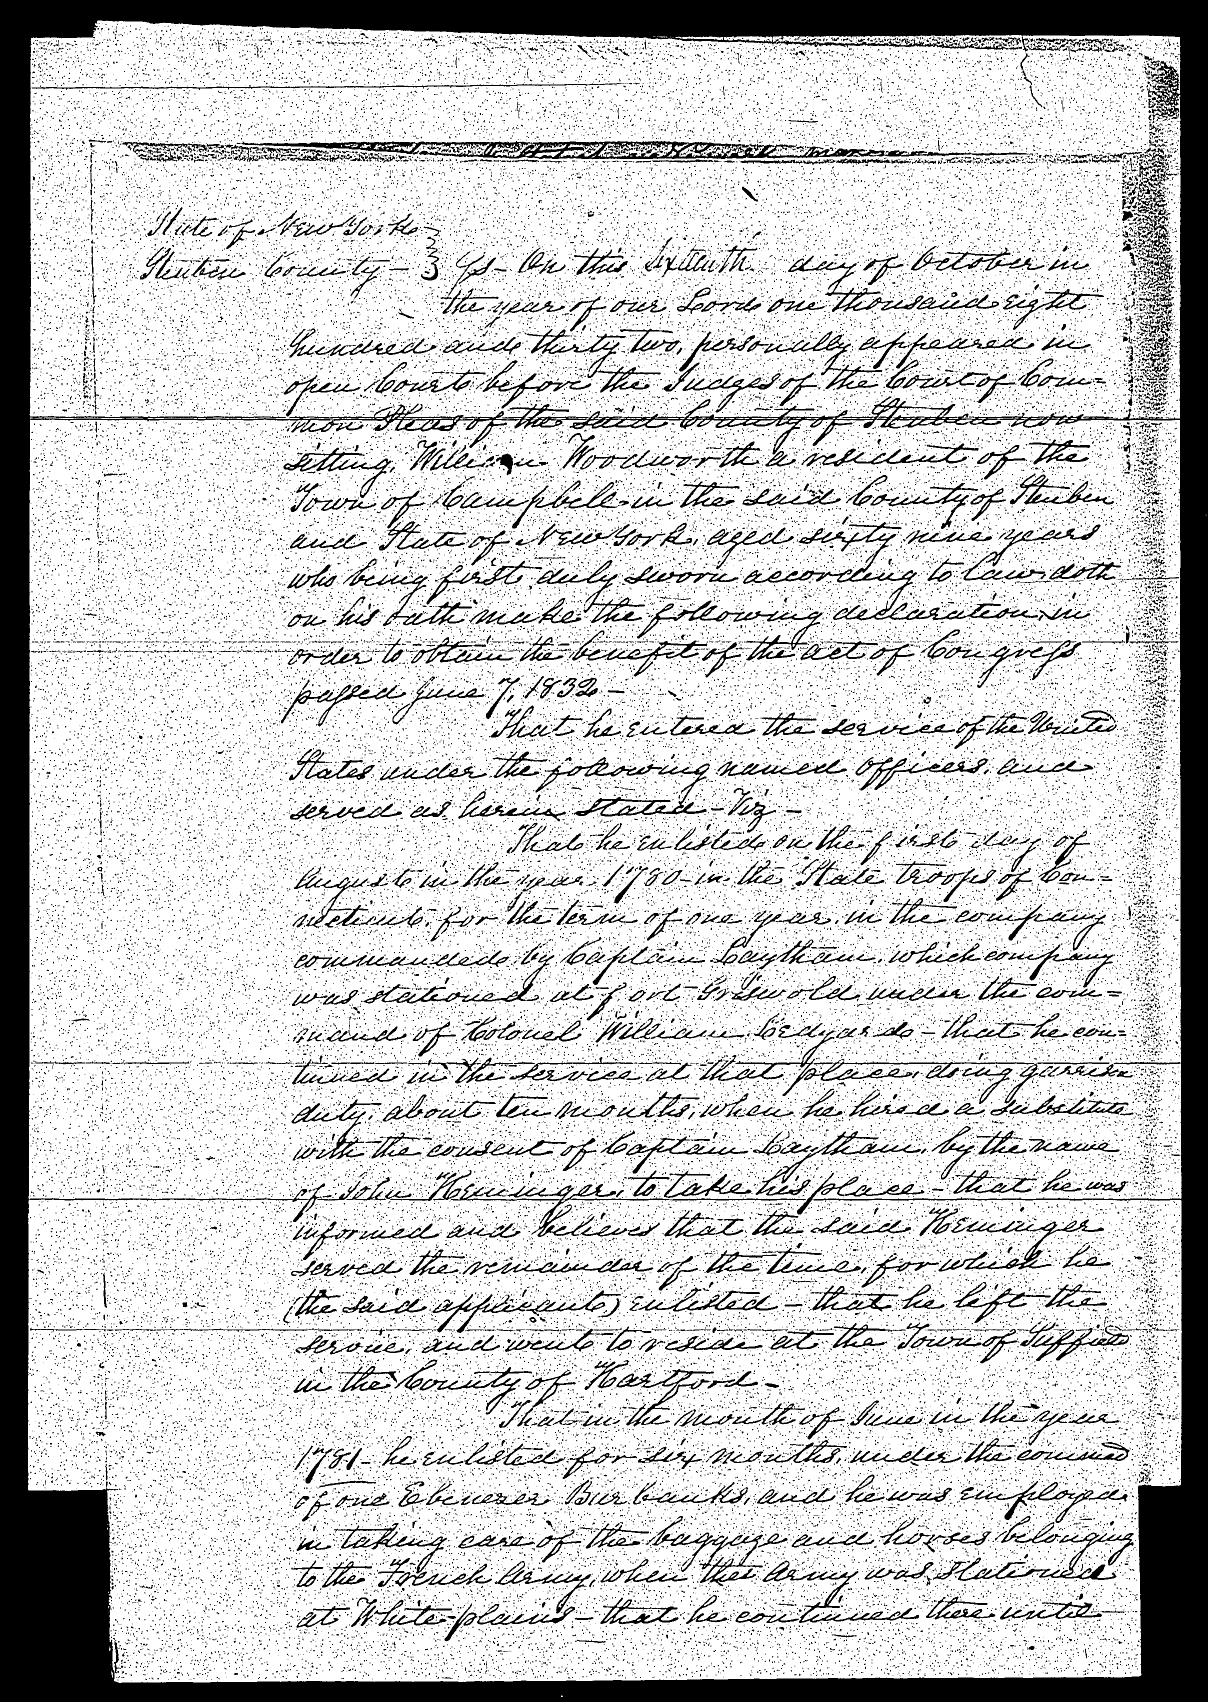 State of New York
Steuben County – } ss – On this Sixteenth day of October in
the year of our Lord one thousand eight
hundred and thirty two, personally appeared in
open Court before the Judges of the Court of Com=
mon Pleas of the said County of Steuben now
sitting, William Woodworth a resident of the
Town of Campbell in the said County of Steuben
and State of New York, aged sixty nine years
who being first duly sworn according to law, doth
on his oath make the following declaration, in
order to obtain the benefit of the act of Congress
passed June 7, 1832 –
That he entered the service of the United
States under the following named officers, and
served as herein stated – Viz –
That he enlisted on the first day of
August in the year 1780 – in the State troops of Con=
necticut, for the term of one year, in the company
commanded by Captain Laytham, which company
was stationed at fort Griswold under the com=
mand of Colonel William Ledyard – that he con=
tinued in the service at that place, doing garrison
duty, about ten months, when he hired a substitute
with the consent of Captain Laytham, by the name
of John Heminger, to take his place – that he was
informed and believes that the said Heminger
served the remainder of the time, for which he
(the said applicant) enlisted – that he left the
service, and went to reside at the Town of Suffield
in the County of Hartford –
That in the month of June in the year
1781 – he enlisted for six months, under the command
of one Ebenezer Burbanks, and he was employed
in taking care of the baggage and horses belonging
to the French Army, when the Army was stationed
at White-plains – that he continued there until